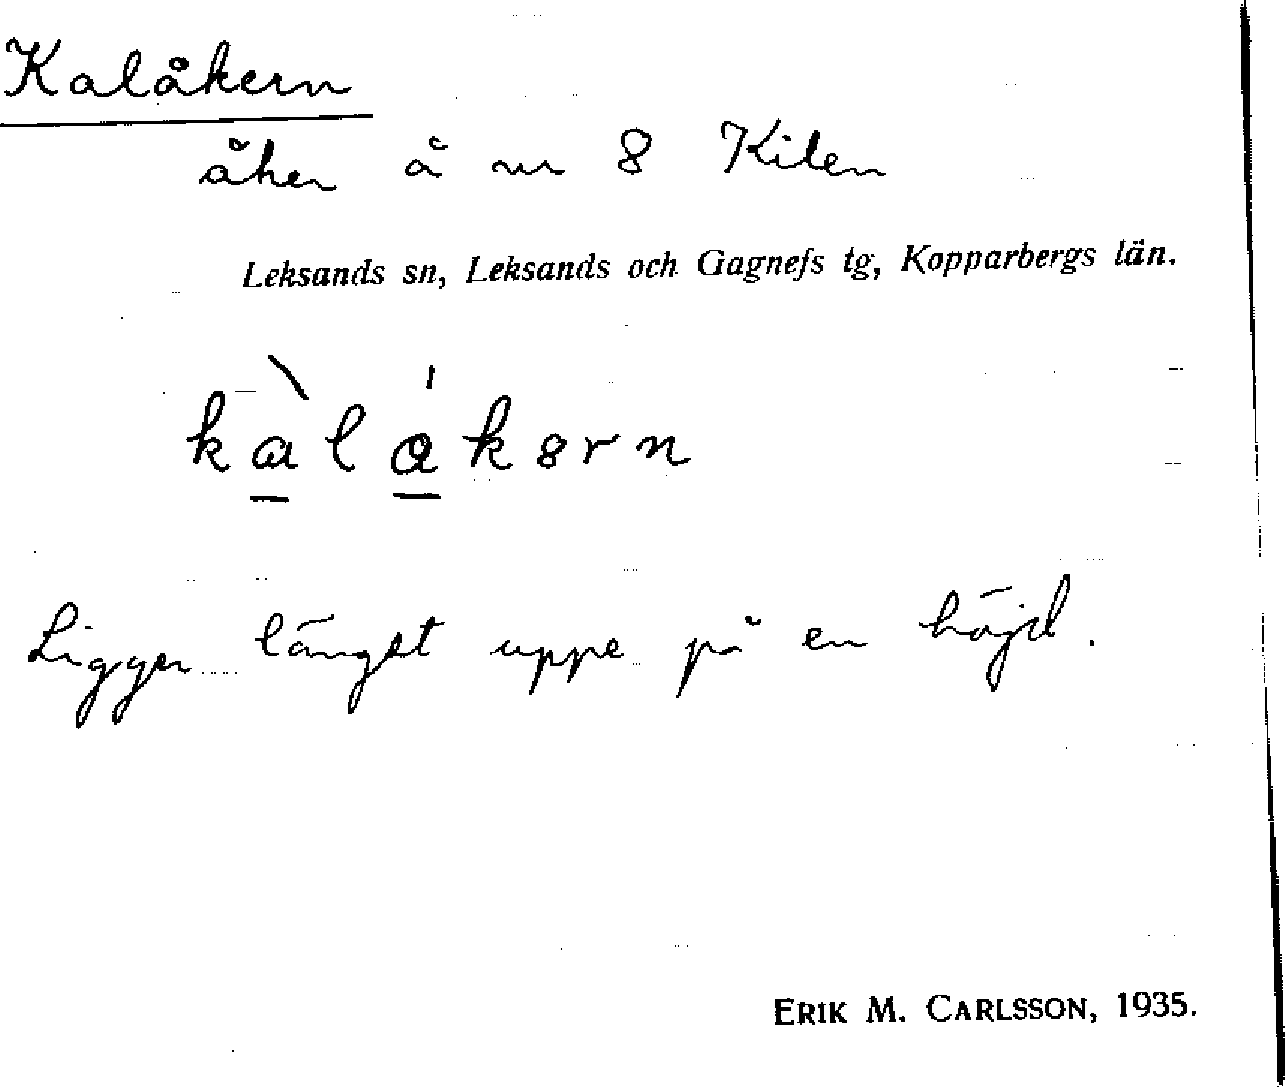 Kalåkern
åker å nr 8 Kilen
Leksands sn, Leksands och Gagnefs tg, Kopparbergs län.
Ligger längst uppe på en höjd.
ERIK M. CARLSSON, 1935.